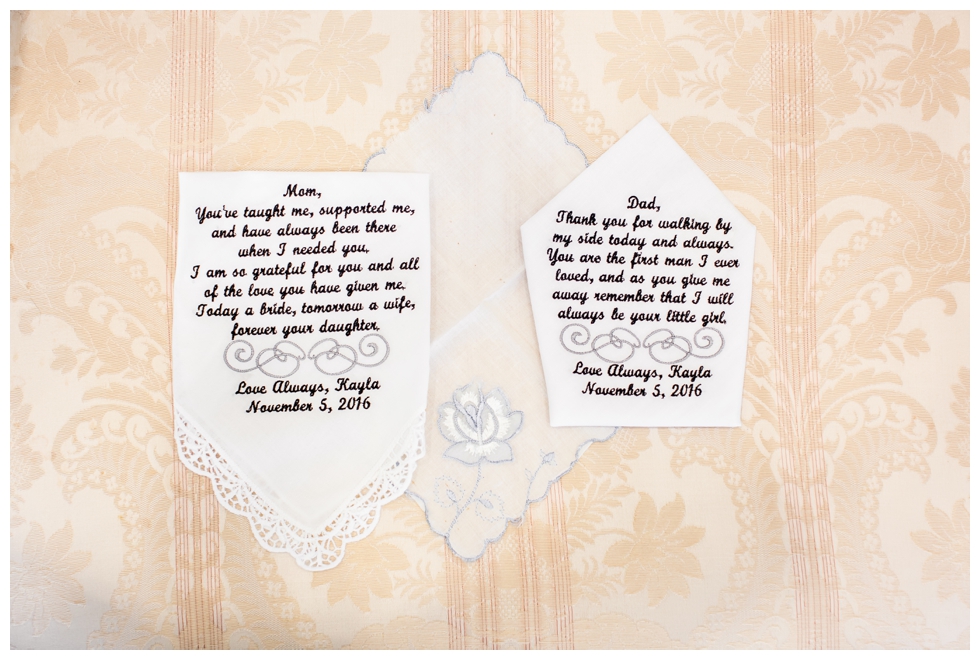 Mom,
You've taught me, supported me,
and have always been there
when I needed you.
I am so grateful for you and all
of the love you have given me.
Today a bride, tomorrow a wife,
forever your daughter.
Love Always, Kayla
November 5, 2016
Dad,
Thank you for walking by
my side today and always.
You are the first man I ever
loved, and as you give me
away remember that I will
always be your little girl.
Love Always, Kayla
November 5, 2016